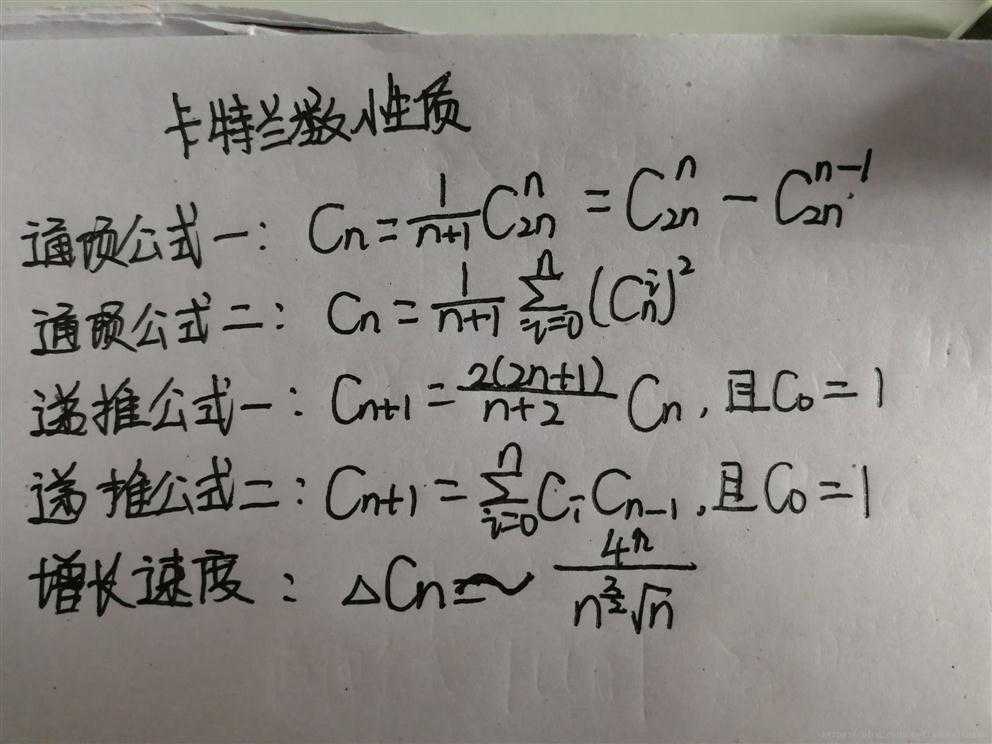 卡特兰数性质
通项公式一: Cn = \frac{1}{n+1} C_{2n}^{n} = C_{2n}^{n} - C_{2n}^{n-1}
通项公式二: Cn = \frac{1}{n+1} \sum_{i=0}^{n} (C_n^i)^2
递推公式一: C_{n+1} = \frac{2(2n+1)}{n+2} C_n, 且C_0 = 1
递推公式二: C_{n+1} = \sum_{i=0}^{n} C_i C_{n-1}, 且C_0 = 1
增长速度: △Cn = ~ \frac{4^n}{n^{\frac{3}{2}} \sqrt{n}}